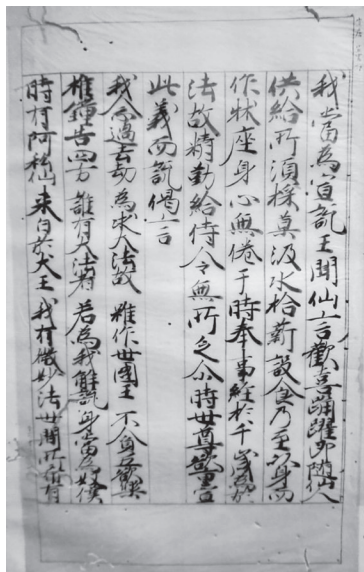 我當為宣說王聞仙言歡喜踊躍即隨仙人
供給所須採菓汲水拾薪設食乃至以身而
作牀座身心無倦于時奉事經於千歲為於
法故精勤給侍令無所乏尒時世尊欲重宣
此義而說偈言
我念過去劫 為求大法故 雖作世國王 不貪五欲樂
椎鐘告四方 誰有大法者 若為我解說 身當為奴僕
時有阿私仙 來白於大王 我有微妙法 世間所希有